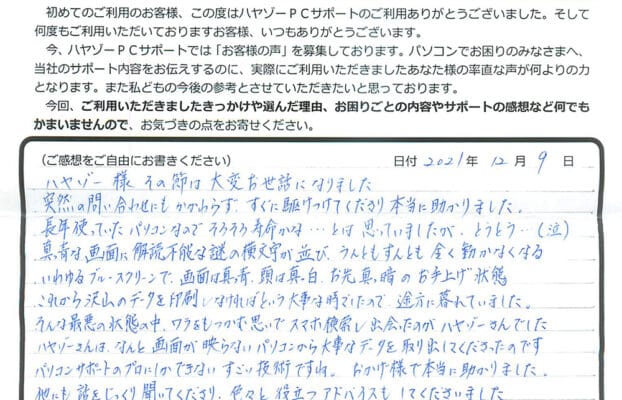 初めてのご利用のお客様、この度はハヤゾーＰＣサポートのご利用ありがとうございました。そして
何度もご利用いただいておりますお客様、いつもありがとうございます。
今、ハヤゾーＰＣサポートでは「お客様の声」を募集しております。パソコンでお困りのみなさまへ、
当社のサポート内容をお伝えするのに、実際にご利用いただきましたあなた様の率直な声が何よりの力
となります。また私どもの今後の参考とさせていただきたいと思っております。
今回、ご利用いただきましたきっかけや選んだ理由、お困りごとの内容やサポートの感想など何でも
かまいませんので、お気づきの点をお寄せください。
（ご感想をご自由にお書きください） 日付 2021年 12月 9日
ハヤゾー様 その節は大変お世話になりました
突然の問い合わせにもかかわらず、すぐに駆けつけてくださり本当に助かりました。
長年使っていたパソコンなので そろそろ寿命かな…とは思っていましたが、とうとう…(泣)
真っ青な画面に解読不能な謎の横文字が並び、うんともすんとも全く動かなくなる
いわゆるブルースクリーンで、画面は真っ青、頭は真っ白、お先真っ暗のお手上げ状態
これから沢山のデータを印刷しなければという大事な時でしたので、途方に暮れていました。
そんな最悪の状態の中、ワラをもつかむ思いでスマホ検索し出会ったのがハヤゾーさんでした
ハヤゾーさんは、なんと画面が映らないパソコンから大事なデータを取り出してくださったのです
パソコンサポートのプロにしかできない すごい技術ですね。おかげ様で本当に助かりました。
他にも話をじっくり聞いてくださり、色々と役立つアドバイスもしてくださいました